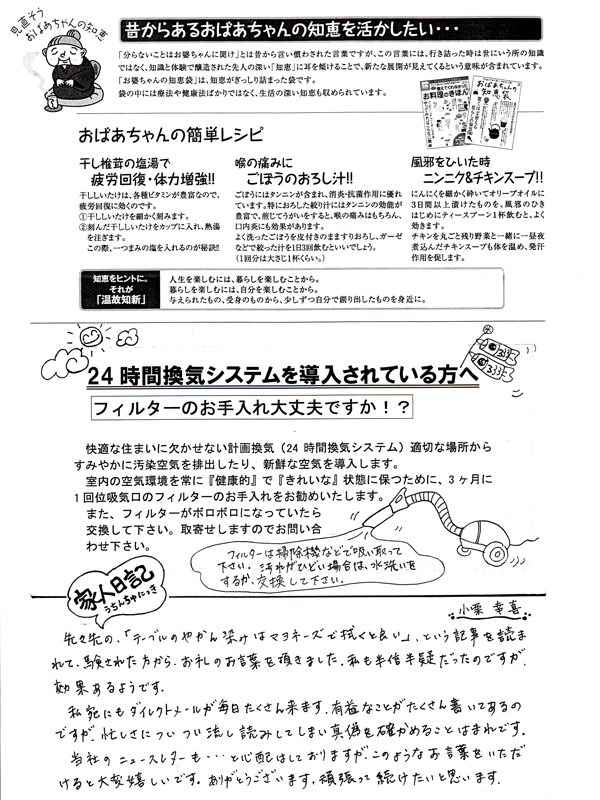 見直そう
おばあちゃんの知恵
昔からあるおばあちゃんの知恵を活かしたい・・・
「分らないことはお婆ちゃんに聞け」とは昔から言い慣わされた言葉ですが、この言葉には、行き詰った時は世にいう所の知識
ではなく、知識と体験で醸造された先人の深い「知恵」に耳を傾けることで、新たな展開が見えてくるという意味が含まれています。
「お婆ちゃんの知恵袋」は、知恵がぎっしり詰まった袋です。
袋の中には療法や健康法ばかりではなく、生活の深い知恵も収められています。
おばあちゃんの簡単レシピ
干し椎茸の塩湯で
疲労回復・体力増強!!
干ししいたけは、各種ビタミンが豊富なので、
疲労回復に効くのです。
①干ししいたけを細かく刻みます。
②刻んだ干ししいたけをカップに入れ、熱湯
を注ぎます。
この際、一つまみの塩を入れるのが秘訣!!
喉の痛みに
ごぼうのおろし汁!!
ごぼうにはタンニンが含まれ、消炎・抗菌作用に優れ
ています。特におろした絞り汁にはタンニンの効能が
豊富で、煎じてうがいをすると、喉の痛みはもちろん、
口内炎にも効果があります。
よく洗ったごぼうを皮付きのまますりおろし、ガーゼ
などで絞った汁を1日3回飲むといいでしょう。
（1回分は大さじ1杯くらい。）
風邪をひいた時
ニンニク&チキンスープ!!
にんにくを細かく砕いてオリーブオイルに
3日間以上漬けたものを、風邪のひき
はじめにティースプーン1杯飲むと、よく
効きます。
チキンを丸ごと残り野菜と一緒に一昼夜
煮込んだチキンスープも体を温め、発汗
作用を促します。
知恵をヒントに。
それが
「温故知新」
人生を楽しむには、暮らしを楽しむことから。
暮らしを楽しむには、自分を楽しむことから。
与えられたもの、受身のものから、少しずつ自分で創り出したものを身近に。
24時間換気システムを導入されている方へ
フィルターのお手入れ大丈夫ですか！？
快適な住まいに欠かせない計画換気（24時間換気システム）適切な場所から
すみやかに汚染空気を排出したり、新鮮な空気を導入します。
室内の空気環境を常に『健康的』で『きれいな』状態に保つために、3ヶ月に
1回位吸気口のフィルターのお手入れをお勧めいたします。
また、フィルターがボロボロになっていたら
交換して下さい。取寄せしますのでお問い合
わせ下さい。
フィルターは掃除機などで吸い取って
下さい。汚れがひどい場合は、水洗いを
するか、交換して下さい。
家人日記
うちんちゅにっき
小栗 幸喜
先々先の、「テーブルのやかん染みはマヨネーズで拭くと良い」、という記事を読ま
れて、験された方から、お礼のお言葉を頂きました。私も半信半疑だったのですが、
効果あるようです。
私宛にもダイレクトメールが毎日たくさん来ます。有益なことがたくさん書いてあるの
ですが、忙しさについつい流し読みしてしまい真偽を確かめることはまれです。
当社のニュースレターも・・・と心配はしておりますが、このようなお言葉をいただ
けると大変嬉しいです。ありがとうございます。頑張って続けたいと思います。